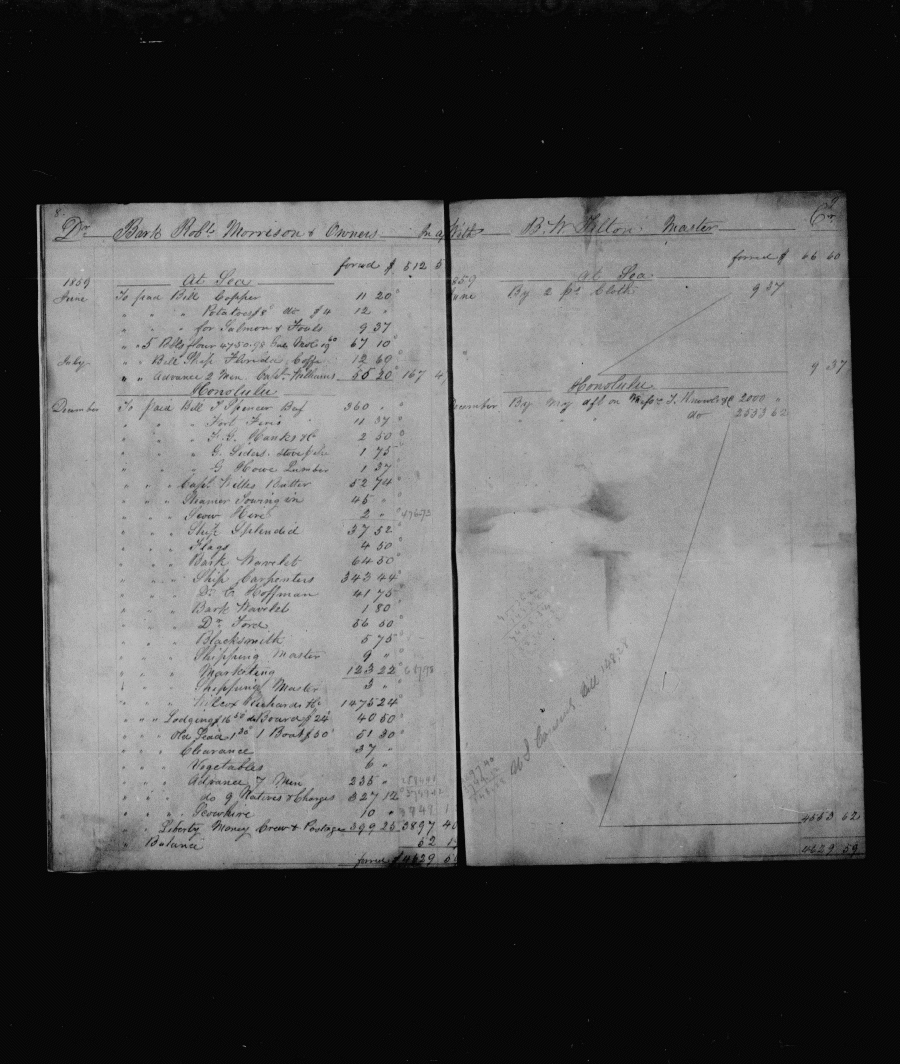 8
Dr. Bark Robt. Morrison & Owners In a/
forwd $ 512 5
At Sea
1859
June To paid Bill Copper 11 20
" " " Potatoes do $4 12 "
" " " for Salmon & Fowls 9 37
" " 5 Bbls flour 67 10
July " " Bill Ship Florida, Coffee 12 60
" " Advance 2 Men Capt. Williams 55 20 167 4
Honolulu
December To paid Bill T Spencer Beef 360 "
" " " Fort Fines 11 37
" " " Hanks 2 50
" " " G. Siders 1 75
" " " G Howe Lumber 1 37
" " " Capt. Willis Butter 52 74
" " " Steamer Towing in 45 "
" " " Scow Hire 2 " 47673
" " " Ship Splendid 37 52
" " " Flags 4 50
" " " Bark Wavelet 64 50
" " " Ship Carpenters 343 44
" " " Dr. Hoffman 41 75
" " " Bark Wavelet 1 80
" " " Dr. Ford 56 50
" " " Blacksmith 5 75
" " " Shipping Master 9 "
" " " Marketing 123 22
" " " Shipping Master 3 "
" " " Wilcox Richards & Co 1475 24
" " " Lodging $16 50 do Board $24 40 50
" " " Old Lead 1 30 1 Boat $50 51 30
" " " Clearance 37 "
" " " Vegetables 6 "
" " " Advance 7 Men 235 "
" " " do 9 Natives & Charges 327 12
" " " Scowhire 10 "
" " " Liberty Money Crew & Postage 399 25 3897 40
" Balance 52 1
forwd $ 4629 5
9
With B. W. Tilton Master Cr
forwd $ 66 60
At Sea
1859
June By 2 ps. Cloth 9 37
9 37
Honolulu
December By my dft on Messrs. 2000 "
" " " do 2553 62
Bill 148.28
4553 62
4629 59